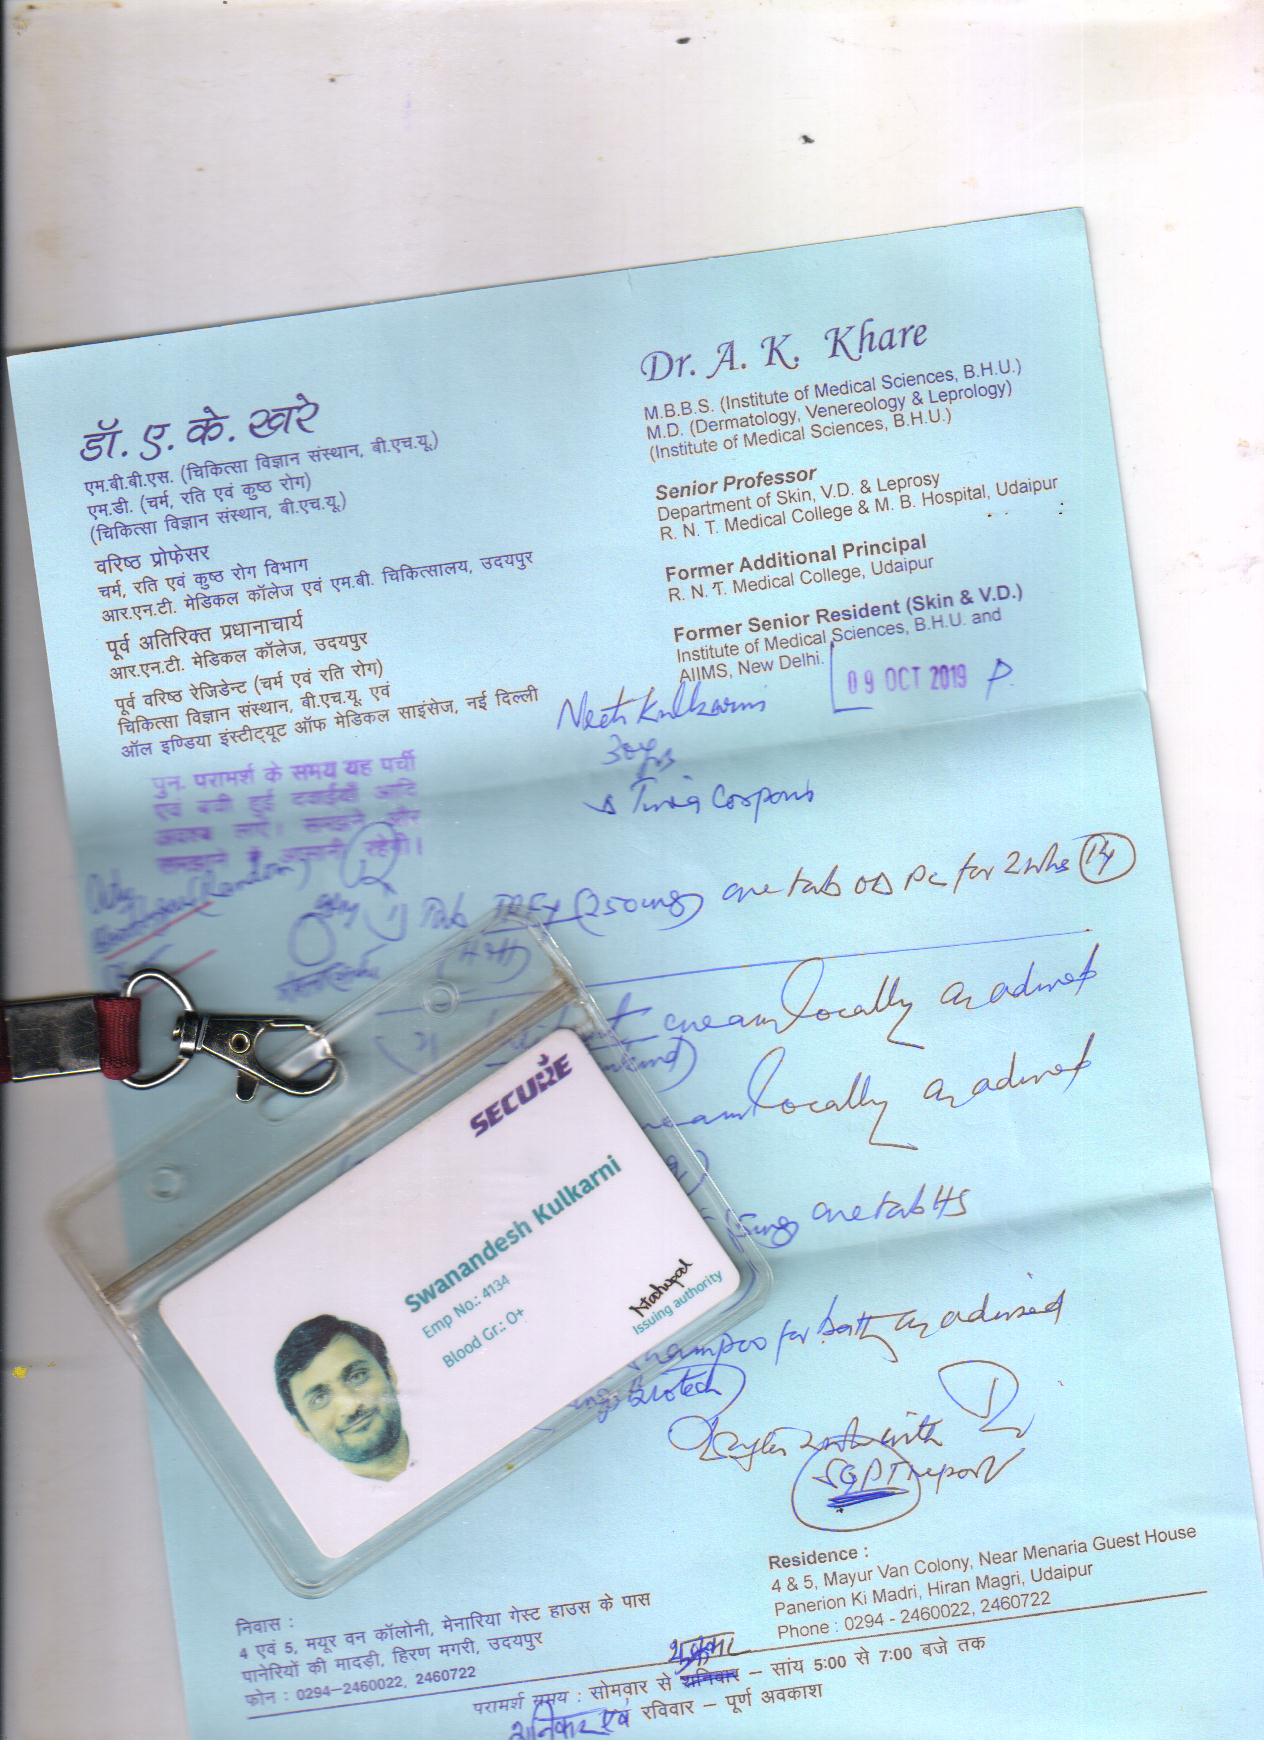 डॉ. ए. के. खरे
एम.बी.बी.एस. (चिकित्सा विज्ञान संस्थान, बी.एच.यू.)
एम.डी. (चर्म, रति एवं कुष्ठ रोग)
(चिकित्सा विज्ञान संस्थान, बी.एच.यू.)
वरिष्ठ प्रोफेसर
चर्म, रति एवं कुष्ठ रोग विभाग
आर.एन.टी. मेडिकल कॉलेज एवं एम.बी. चिकित्सालय, उदयपुर
पूर्व अतिरिक्त प्रधानाचार्य
आर.एन.टी. मेडिकल कॉलेज, उदयपुर
पूर्व वरिष्ठ रेजिडेन्ट (चर्म एवं रति रोग)
चिकित्सा विज्ञान संस्थान, बी.एच.यू. एवं
ऑल इण्डिया इंस्टीट्यूट ऑफ मेडिकल साइंसेज, नई दिल्ली
Dr. A. K. Khare
M.B.B.S. (Institute of Medical Sciences, B.H.U.)
M.D. (Dermatology, Venereology & Leprology)
(Institute of Medical Sciences, B.H.U.)
Senior Professor
Department of Skin, V.D. & Leprosy
R. N. T. Medical College & M. B. Hospital, Udaipur
Former Additional Principal
R. N. T. Medical College, Udaipur
Former Senior Resident (Skin & V.D.)
Institute of Medical Sciences, B.H.U. and
AIIMS, New Delhi.
09 OCT 2019
पुन. परामर्श के समय यह पर्ची
एवं बची हुई दवाईयाँ आदि
अवश्य लाऐं। समझने और
समझाने में आसानी रहेगी।
Kulkarni
30 yrs
Tinea Corporis
1) Tab (250mg) one tab OD PC for 2 wks 14
cream locally as advised
locally as advised
5mg one tab HS
Shampoo for bath as advised
Biotech)
with
SGPT report
SECURE
Swanandesh Kulkarni
Emp No.: 4134
Blood Gr.: O+
Issuing authority
Residence :
4 & 5, Mayur Van Colony, Near Menaria Guest House
Panerion Ki Madri, Hiran Magri, Udaipur
Phone : 0294 - 2460022, 2460722
निवास :
4 एवं 5, मयूर वन कॉलोनी, मेनारिया गेस्ट हाउस के पास
पानेरियों की मादड़ी, हिरण मगरी, उदयपुर
फोन : 0294-2460022, 2460722
परामर्श समय : सोमवार से शनिवार – सांय 5:00 से 7:00 बजे तक
शनिवार एवं रविवार – पूर्ण अवकाश